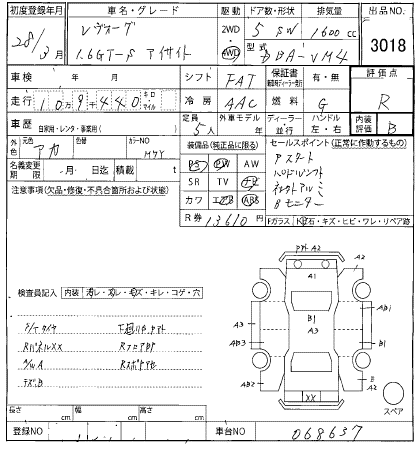 初度登録年月 車名・グレード 駆動 ドア数・形状 排気量 出品NO
28/3月 レヴォーグ 2WD 5 SW 1600cc 3018
1.6GT-S アイサイト AWD 型式 DBA-VM4
車検 年 月 シフト FAT 保証書 有・無 評価点
走行 10万9千440 キロ マイル 冷房 AAC 燃料 G R
車歴 自家用・レンタ・事業用( ) 定員 5人 外車モデル 年 ディーラー 並行 ハンドル 左・右 内装評価 B
外色 元色 アカ 色替 カラーNO M7Y 装備品(純正品に限る) セールスポイント(正常に作動するもの)
名義変更期限 -月 日迄 積載 t PS PW AW アスタート
注意事項(欠品・修復・不具合箇所および状態) SR TV ナビ
カワ エアB ABS Bモニター
R券 13610円 Fガラス 飛石・キズ・ヒビ・ワレ・リペア跡
検査員記入 内装 汚レ・スレ・キズ・キレ・コゲ・穴
RパネルXX RフロアAP
A/W A
アト A2
A1
A2
B1
A3
A3
AB1
AB3
B1
AB2
B
A2
XX
スペア
長さ cm 幅 cm 高さ cm
登録NO 車台NO 068637